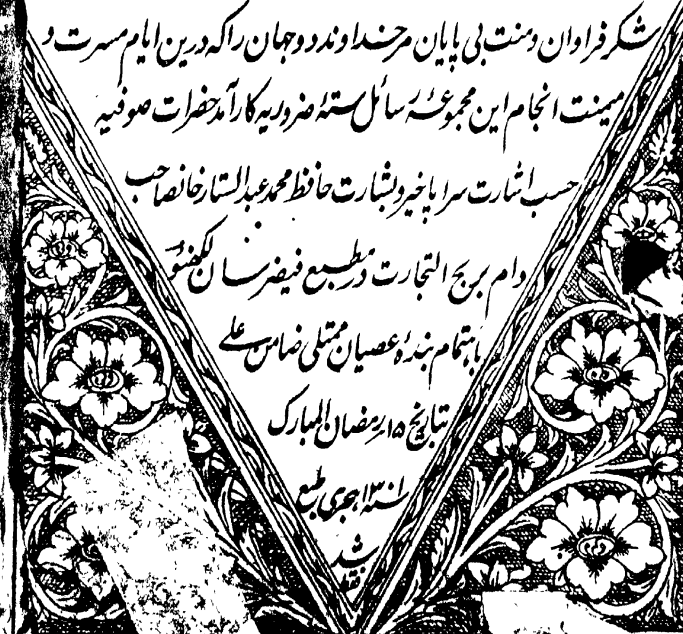 شکر فراوان و منت بی پایان مر خداوند دو جهان را که درین ایام مسرت و
میمنت انجام این مجموعۂ رسائل ستۂ ضروریه کارآمد حضرات صوفیه
حسب اشارت سراپا خیر و بشارت حافظ محمد عبدالستار خانصاحب
دام بربح التجارت در مطبع فیض رسان لکھنؤ
باهتمام بندۂ عصیان ممتلی ضامن علی
بتاریخ ۱۵ رمضان المبارک
هجری طبع
شد
فقط